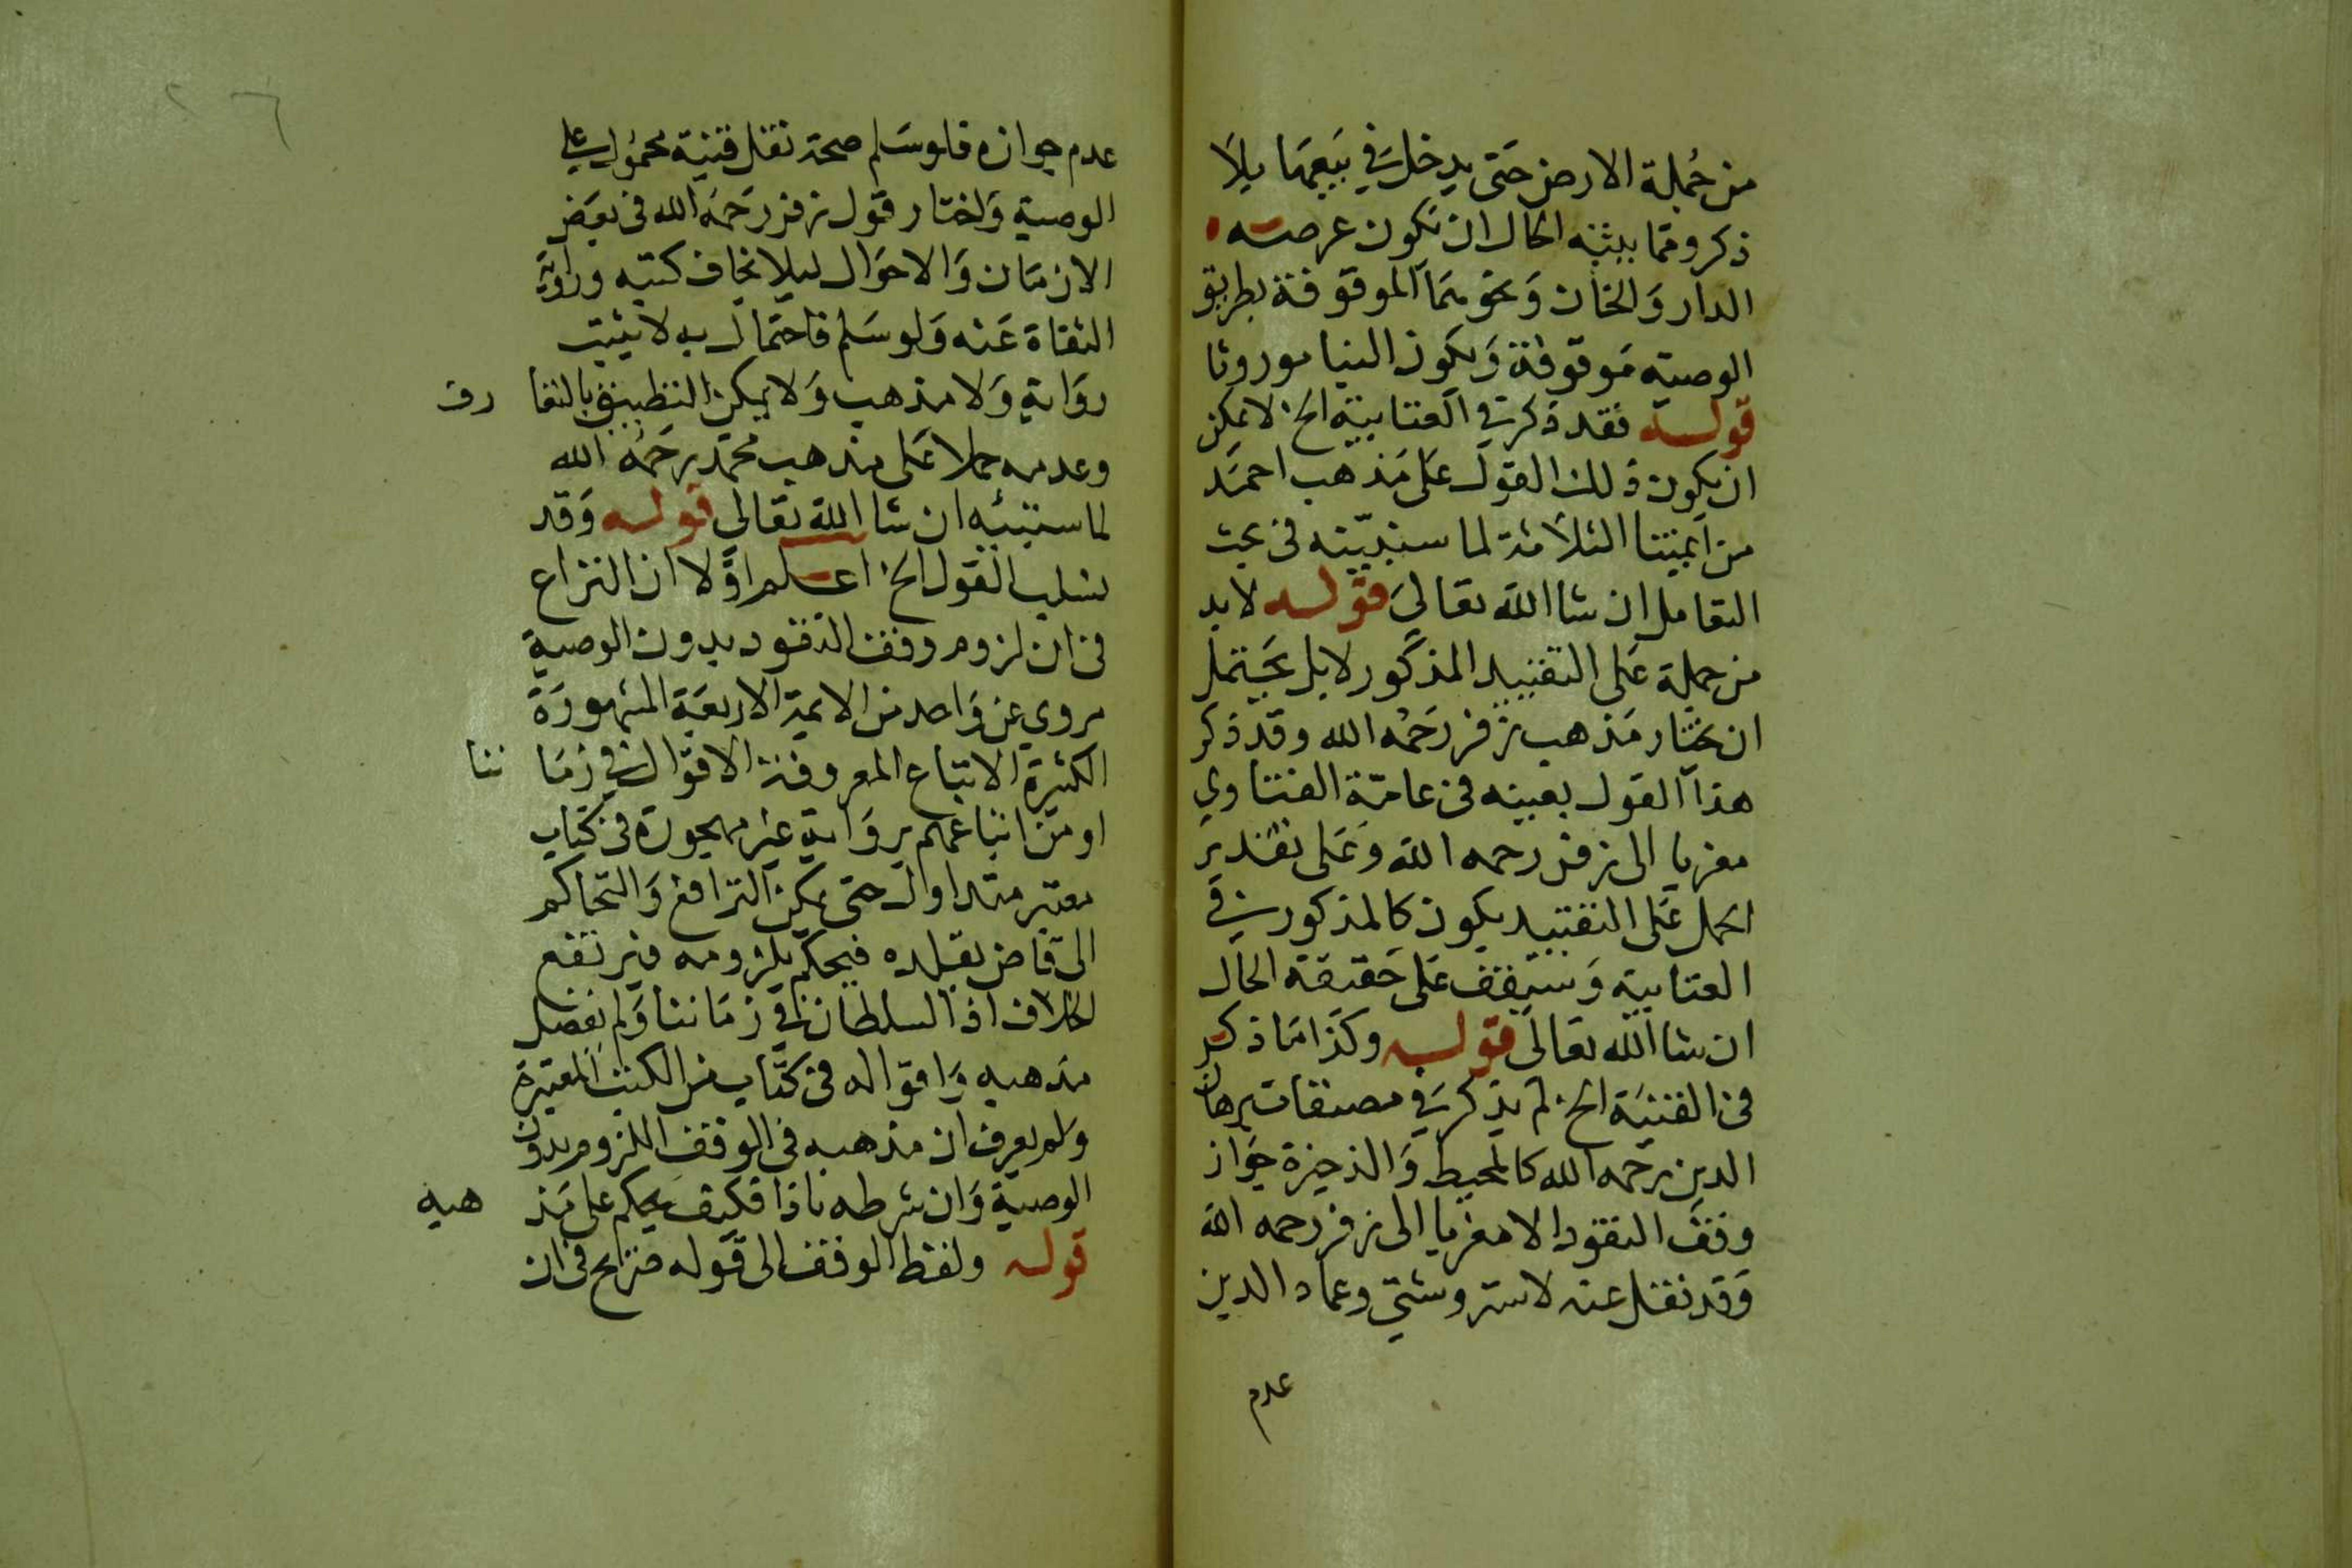 من جملة الارض حتى يدخل في بيعها بلا
ذكر ومما يبثنه الحال ان تكون عرصته
الدار والخان ونحوهما الموقوفة بطريق
الوصية موقوفة ويكون البنا موروثا
قوله فقد ذكر في العتابية الخ لا يمكن
ان يكون ذلك القول على مذهب احمد
من ايمتنا الثلاثة لما سنبينه في بحث
التعامل ان شا الله تعالى قوله لابد
من حملة على التقييد المذكور لا بل يحتمل
ان يختار مذهب زفر رحمه الله وقد ذكر
هذا القول بعينه في عامة الفتاوي
معزيا الى زفر رحمه الله وعلى تقدير
الحمل على التقييد يكون كالمذكور في
العتابية وستقف على حقيقة الحال
ان شا الله تعالى قوله وكذا ما ذكر
في القنية الخ لم يذكر في مصنفات برهان
الدين رحمه الله كالمحيط والذخيرة جواز
وقف النقود الا معزيا الى زفر رحمه الله
وقد نقل عنه لاستروشني وعماد الدين
عدم
٢٦
عدم جوازه فلو سلم صحة نقل قنية محمول على
الوصية واختار قول زفر رحمه الله في بعض
الازمان والاحوال ليلا يخاف كتبه ورواية
الثقاة عنه ولو سلم فاحتمال به لا يثبت
رواية ولا مذهب ولا يمكن التطبيق بالتعا رف
وعدمه حملا على مذهب محمد رحمه الله
لما سنبينه ان شا الله تعالى قوله وقد
لسلب القول الخ اعلم اولا ان النزاع
في ان لزوم وقف النقود بدون الوصية
مروي عن واحد من الايمة الاربعة المشهورة
الكثيرة الاتباع المعروفة الاقوال في زما ننا
او من اتباعهم برواية غير مهجورة في كتاب
معتبر متداول حتى يمكن الترافع والتحاكم
الى قاض يقلده فيحكم بلزومه فيرتفع
الخلاف اذ السلطان في زماننا ولم يفصل
مذهبه واقواله في كتاب من الكتب المعتبرة
ولم يعرف ان مذهبه في الوقف اللزوم بدون
الوصية وان شرطه ماذا فكيف يحكم على مذ هبه
قوله ولفظ الوقف الى قوله صرايح في ان